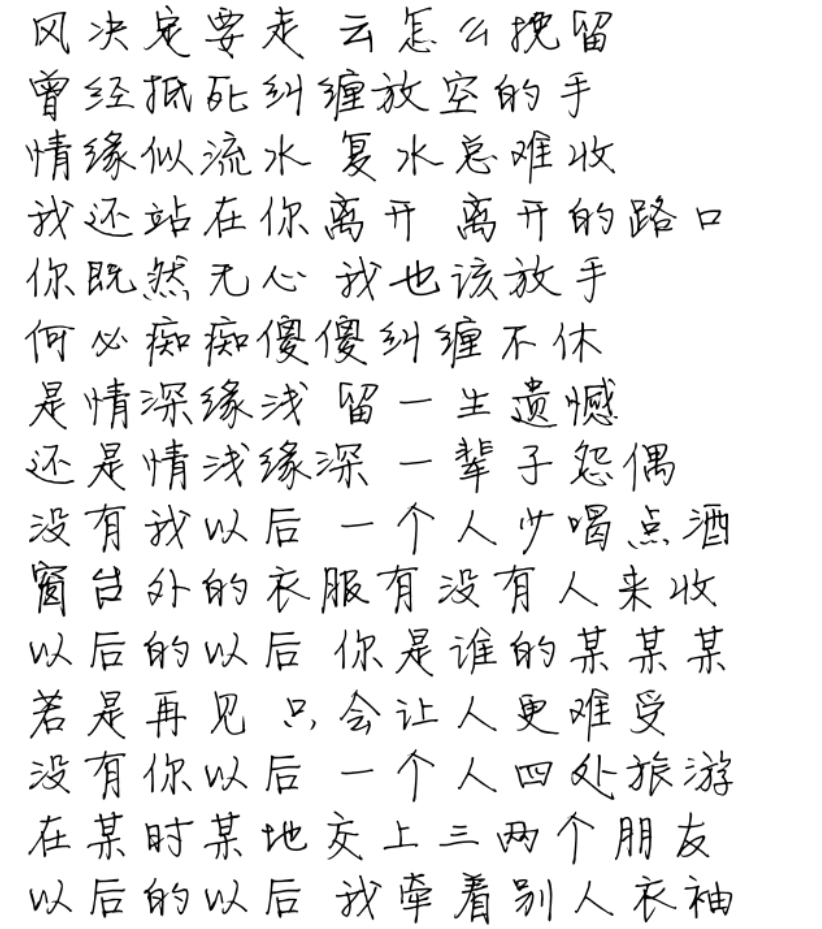 风决定要走 云怎么挽留
曾经抵死纠缠放空的手
情缘似流水 复水总难收
我还站在你离开 离开的路口
你既然无心 我也该放手
何必痴痴傻傻纠缠不休
是情深缘浅 留一生遗憾
还是情浅缘深 一辈子怨偶
没有我以后 一个人少喝点酒
窗台外的衣服有没有人来收
以后的以后 你是谁的某某某
若是再见 只会让人更难受
没有你以后 一个人四处旅游
在某时某地交上三两个朋友
以后的以后 我牵着别人衣袖